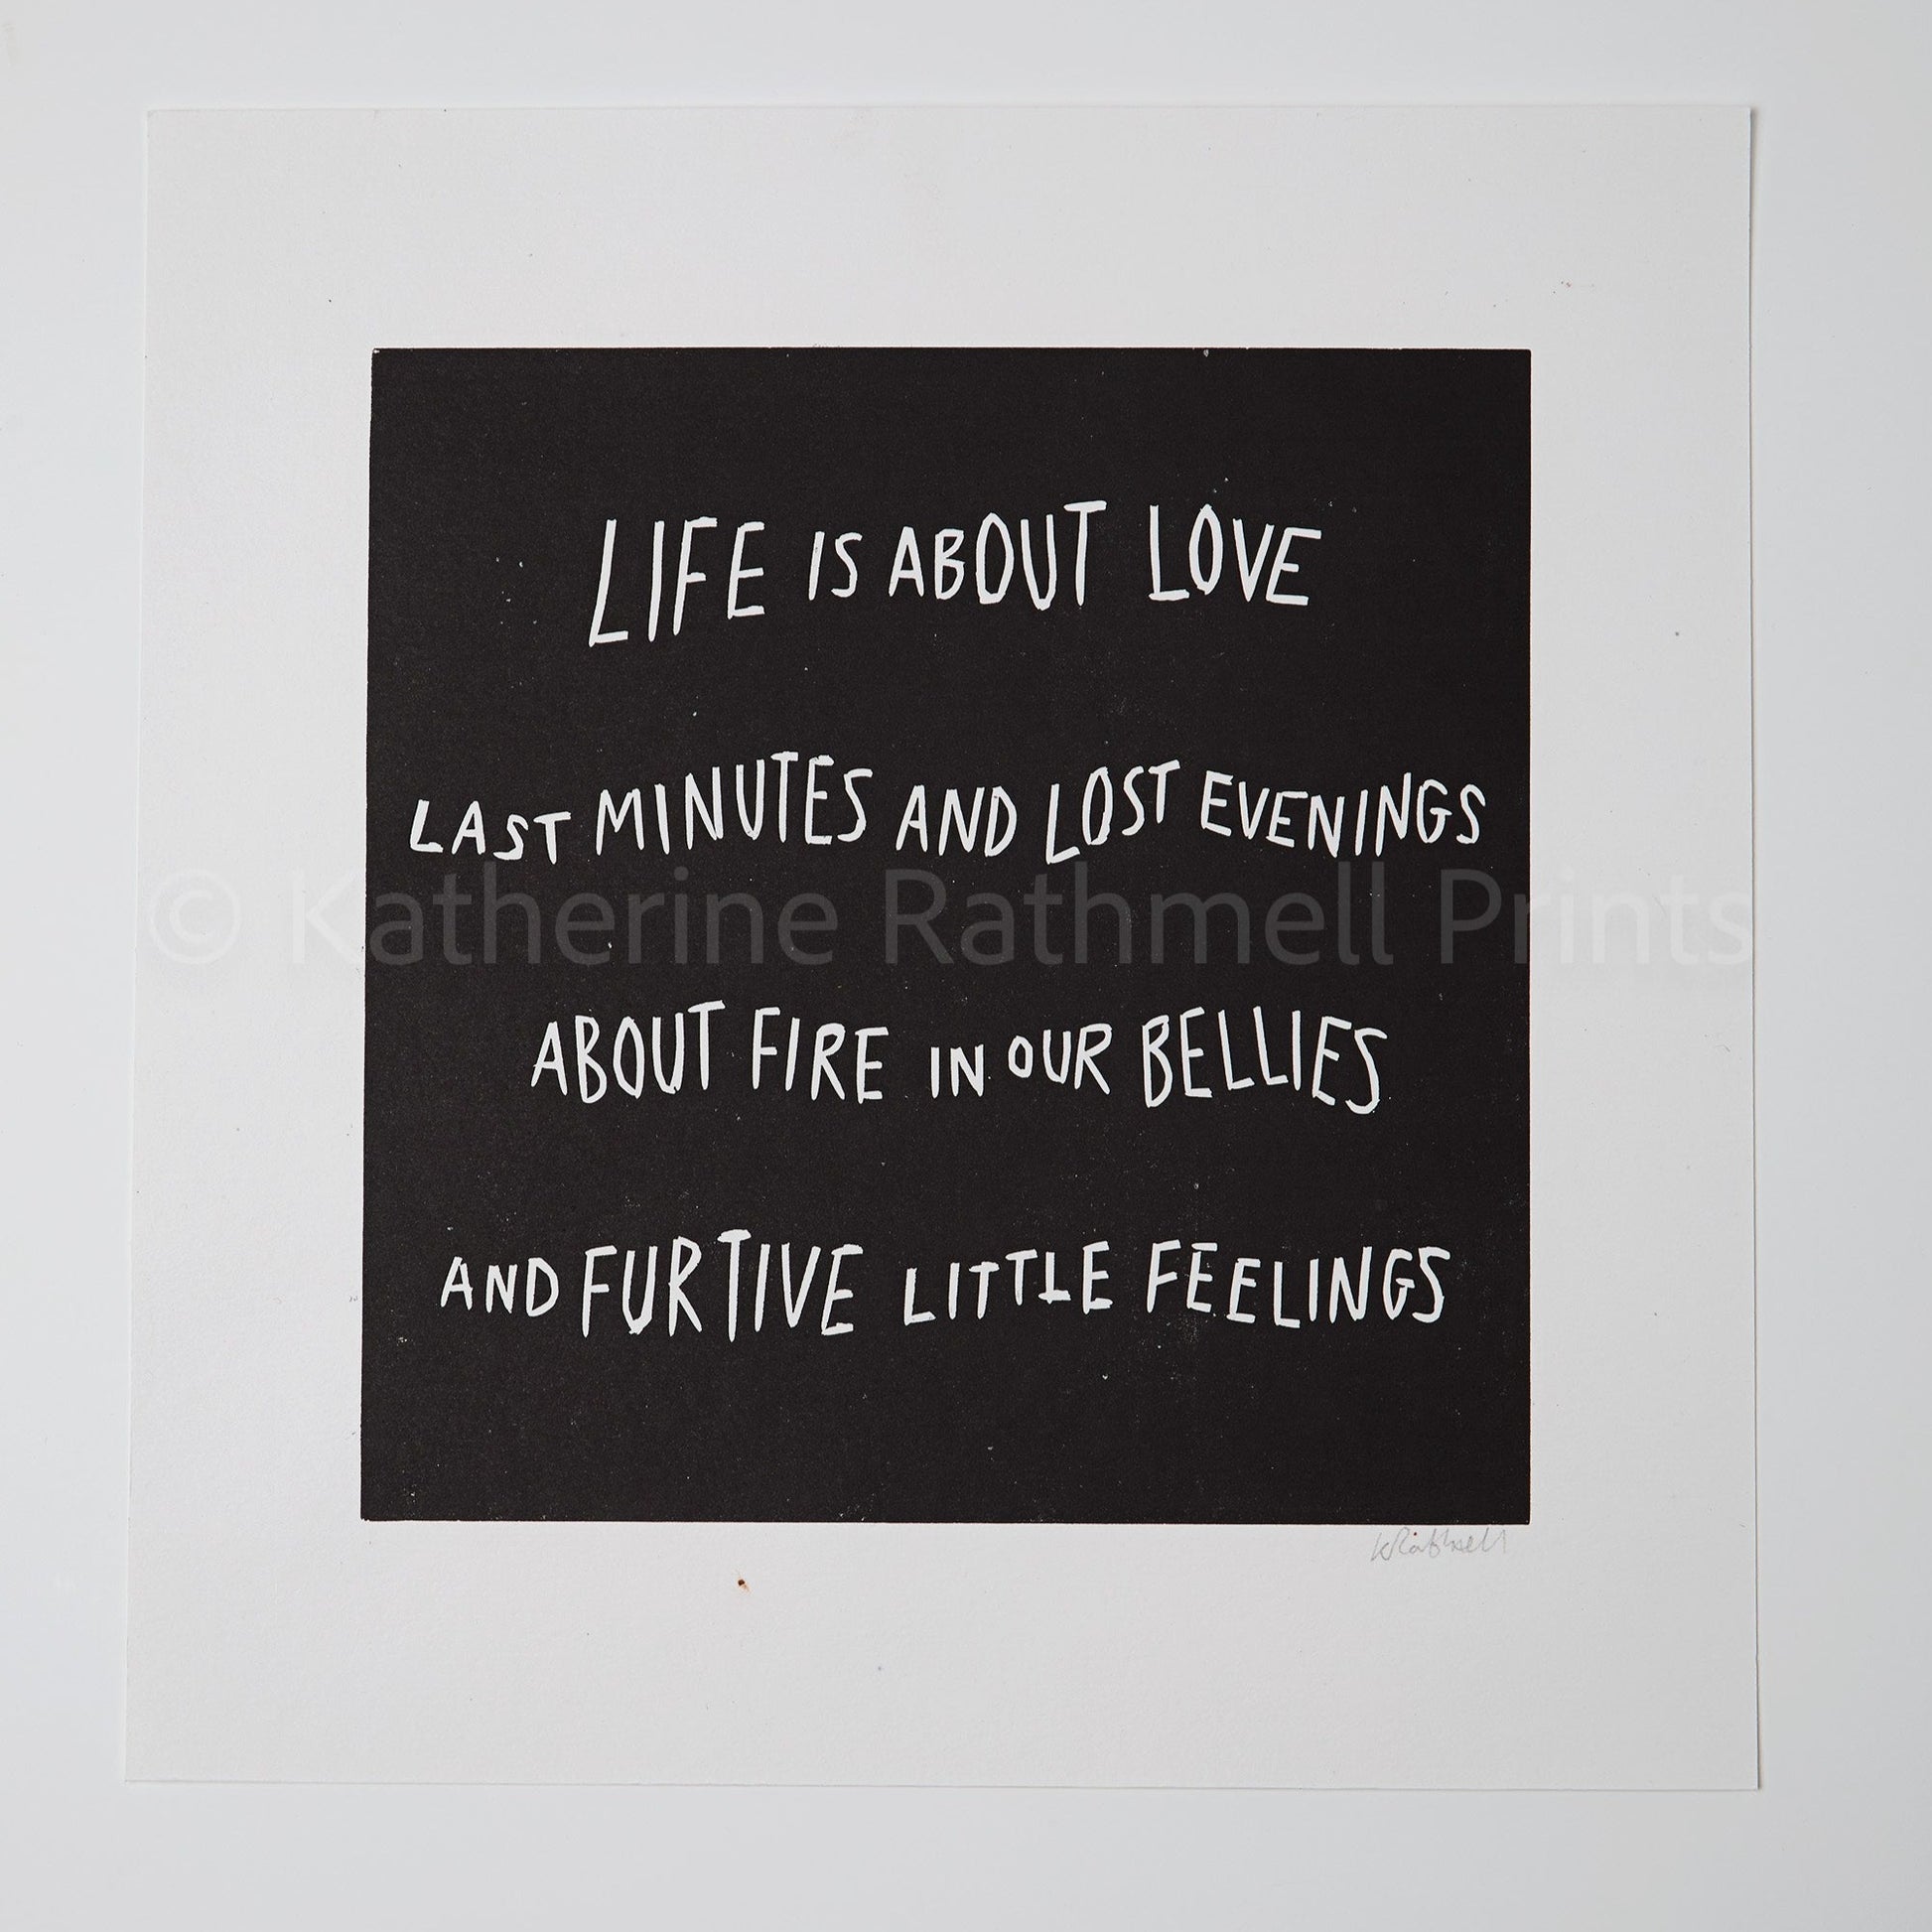 LIFE IS ABOUT LOVE
LAST MINUTES AND LOST EVENINGS
© Katherine Rathmell Prints
ABOUT FIRE IN OUR BELLIES
AND FURTIVE LITTLE FEELINGS
KRathmell